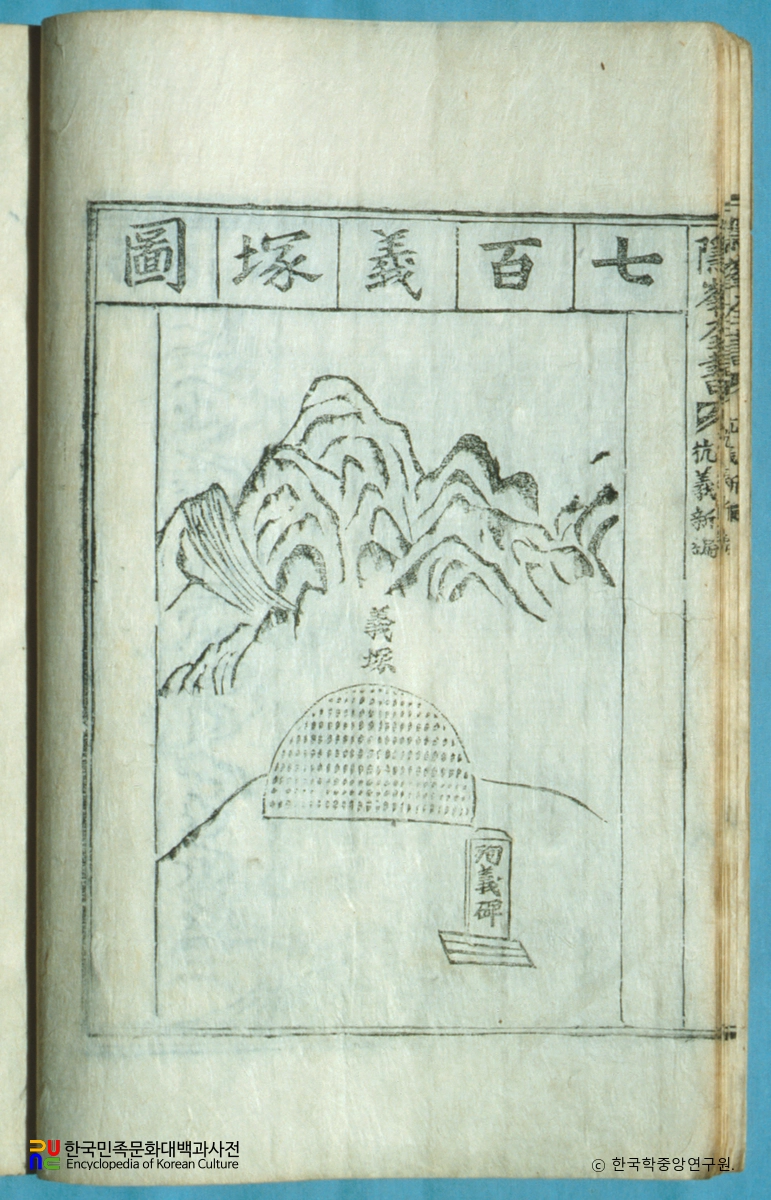 七百義塚圖
隱峯全書
抗義新編
義塚
殉義碑
한국민족문화대백과사전
Encyclopedia of Korean Culture
© 한국학중앙연구원